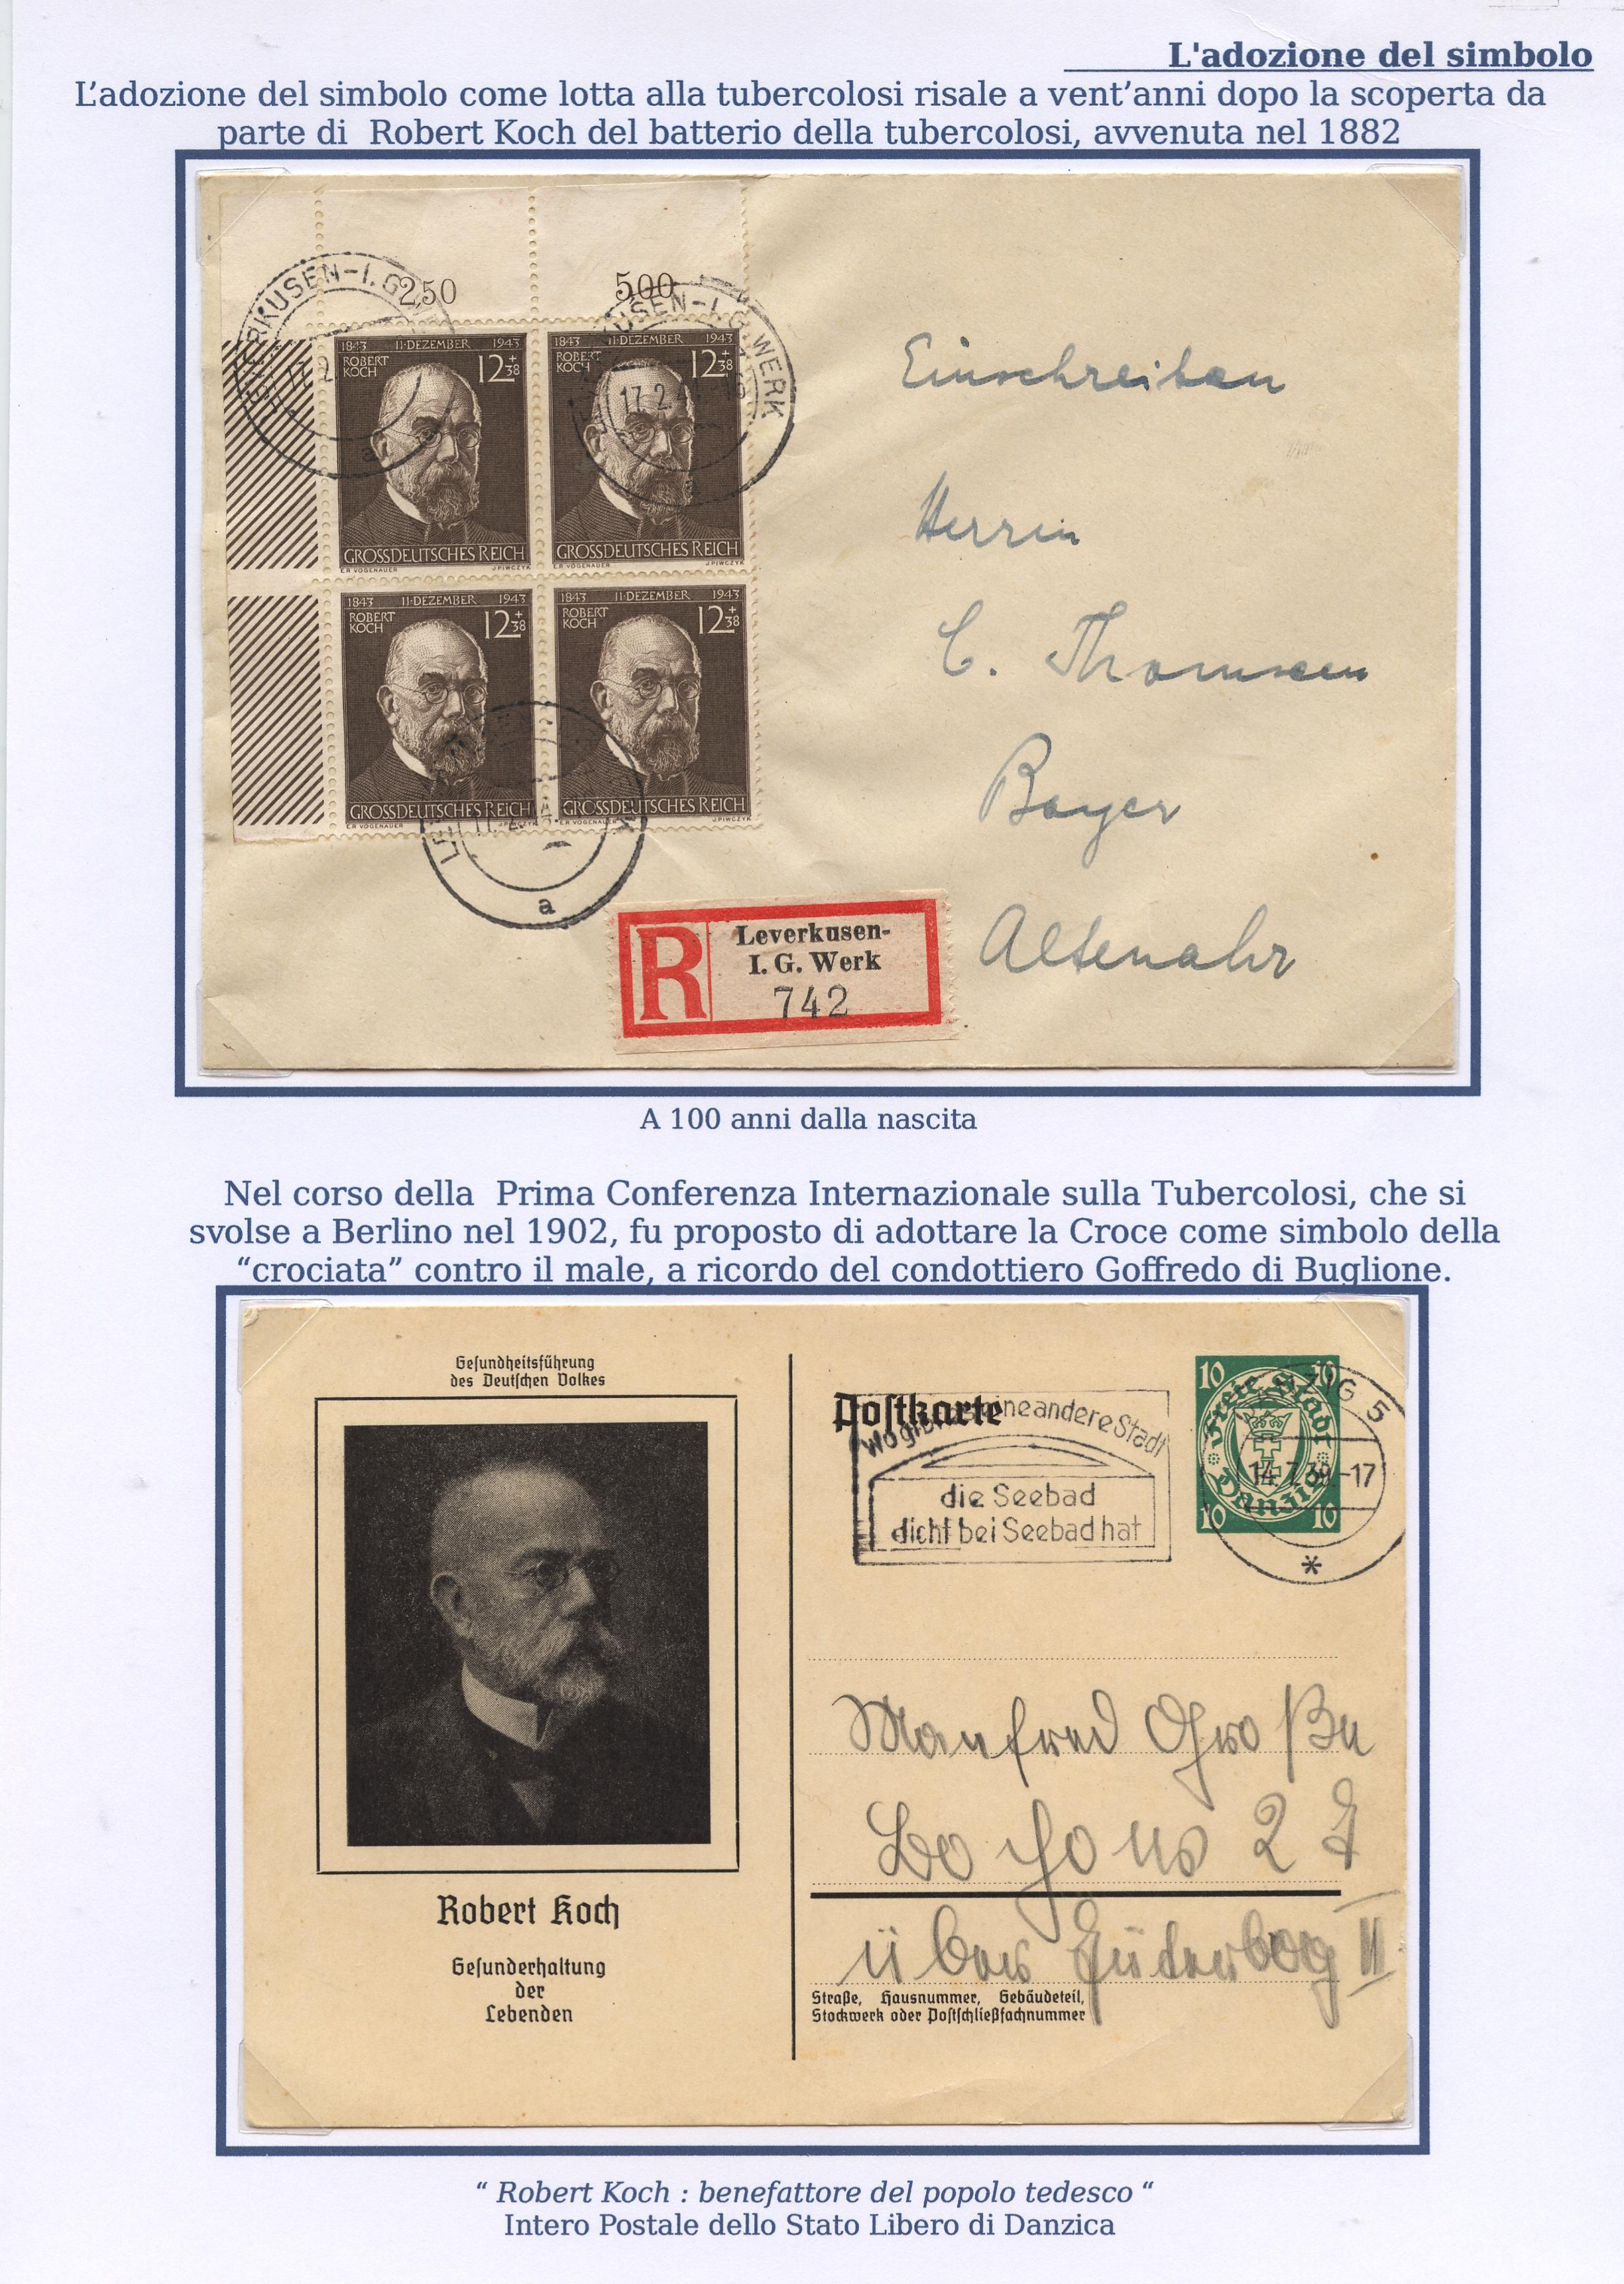 L'adozione del simbolo
L'adozione del simbolo come lotta alla tubercolosi risale a vent'anni dopo la scoperta da
parte di Robert Koch del batterio della tubercolosi, avvenuta nel 1882
250
500
LEVERKUSEN-I.G.WERK
17.2.
1843 11·DEZEMBER 1943
ROBERT KOCH
12+38
GROSSDEUTSCHES REICH
E.R VOGENAUER J.PIWCZYK
1843 11·DEZEMBER 1943
ROBERT KOCH
12+38
GROSSDEUTSCHES REICH
E.R VOGENAUER J.PIWCZYK
1843 11·DEZEMBER 1943
ROBERT KOCH
12+38
GROSSDEUTSCHES REICH
E.R VOGENAUER J.PIWCZYK
1843 11·DEZEMBER 1943
ROBERT KOCH
12+38
GROSSDEUTSCHES REICH
E.R VOGENAUER J.PIWCZYK
a
Einschreiben
Herrn
C. Thomsen
Bayer
Altenahr
R
Leverkusen-
I. G. Werk
742
A 100 anni dalla nascita
Nel corso della Prima Conferenza Internazionale sulla Tubercolosi, che si
svolse a Berlino nel 1902, fu proposto di adottare la Croce come simbolo della
“crociata” contro il male, a ricordo del condottiero Goffredo di Buglione.
Gesundheitsführung
des Deutschen Volkes
Robert Koch
Gesunderhaltung
der
Lebenden
Postkarte
eine andere Stadt
die Seebad
dicht bei Seebad hat
10 10
Freie Stadt
Danzig
10 10
DANZIG 5
14.7.39-17
Manfred
über II
Straße, Hausnummer, Gebäudeteil,
Stockwerk oder Postschließfachnummer
“ Robert Koch : benefattore del popolo tedesco “
Intero Postale dello Stato Libero di Danzica